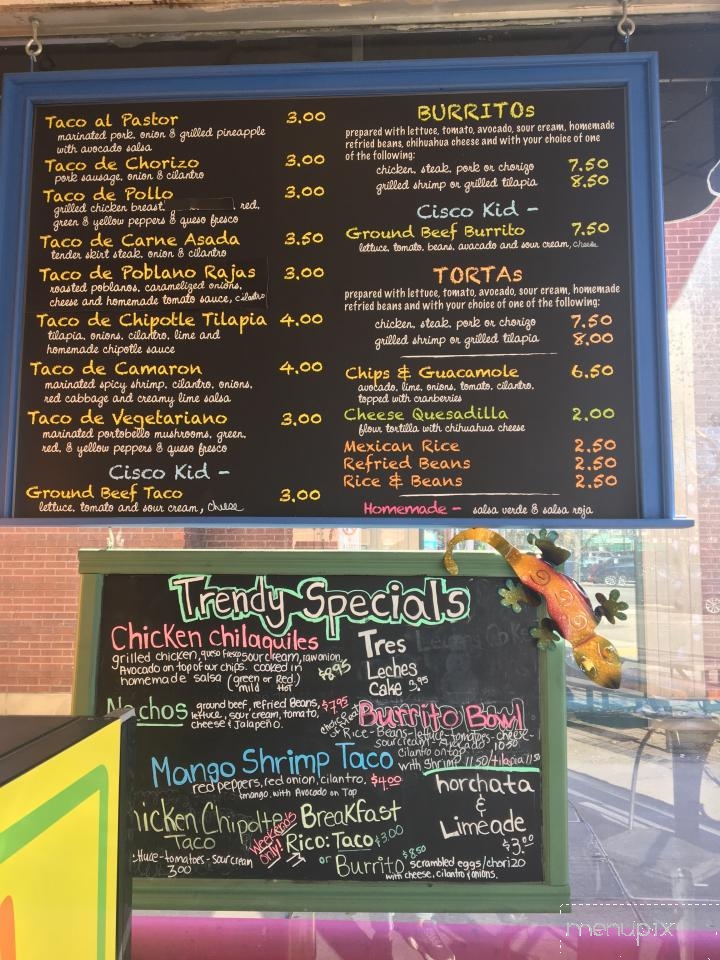 Taco al Pastor 3.00
marinated pork, onion & grilled pineapple
with avocado salsa
Taco de Chorizo 3.00
pork sausage, onion & cilantro
Taco de Pollo 3.00
grilled chicken breast, red,
green & yellow peppers & queso fresco
Taco de Carne Asada 3.50
tender skirt steak, onion & cilantro
Taco de Poblano Rajas 3.00
roasted poblanos, caramelized onions,
cheese and homemade tomato sauce, cilantro
Taco de Chipotle Tilapia 4.00
tilapia, onions, cilantro, lime and
homemade chipotle sauce
Taco de Camaron 4.00
marinated spicy shrimp, cilantro, onions,
red cabbage and creamy lime salsa
Taco de Vegetariano 3.00
marinated portobello mushrooms, green,
red, & yellow peppers & queso fresco
Cisco Kid -
Ground Beef Taco 3.00
lettuce, tomato and sour cream, cheese
BURRITOs
prepared with lettuce, tomato, avocado, sour cream, homemade
refried beans, chihuahua cheese and with your choice of one
of the following:
chicken, steak, pork or chorizo 7.50
grilled shrimp or grilled tilapia 8.50
Cisco Kid -
Ground Beef Burrito 7.50
lettuce, tomato, beans, avacado and sour cream, cheese
TORTAs
prepared with lettuce, tomato, avocado, sour cream, homemade
refried beans and with your choice of one of the following:
chicken, steak, pork or chorizo 7.50
grilled shrimp or grilled tilapia 8.00
Chips & Guacamole 6.50
avocado, lime, onions, tomato, cilantro,
topped with cranberries
Cheese Quesadilla 2.00
flour tortilla with chihuahua cheese
Mexican Rice 2.50
Refried Beans 2.50
Rice & Beans 2.50
Homemade - salsa verde & salsa roja
Trendy Specials
Chicken chilaquiles
grilled chicken, queso fresco, sour cream, raw onion,
Avocado on top of our chips. cooked in
homemade salsa (green or Red) $8.95
mild Hot
Tres
Leches
Cake 3.95
Nachos ground beef, refried Beans, $7.95
lettuce, sour cream, tomato,
cheese & Jalapeno.
Burrito Bowl
Rice - Beans - lettuce - tomatoes - cheese -
sour cream - Avocado 10.50
Cilantro on top
with Shrimp 11.50/tilapia 11.50
Mango Shrimp Taco
red peppers, red onion, cilantro, $4.00
mango, with Avocado on Top
horchata
&
Limeade
$3.00
hicken Chipotle
Taco
ttuce - tomatoes - sour cream
3.00
Weekends
only!
Breakfast
Rico: Taco $3.00
or Burrito $8.50 scrambled eggs/chorizo
with cheese, cilantro & onions.
menupix